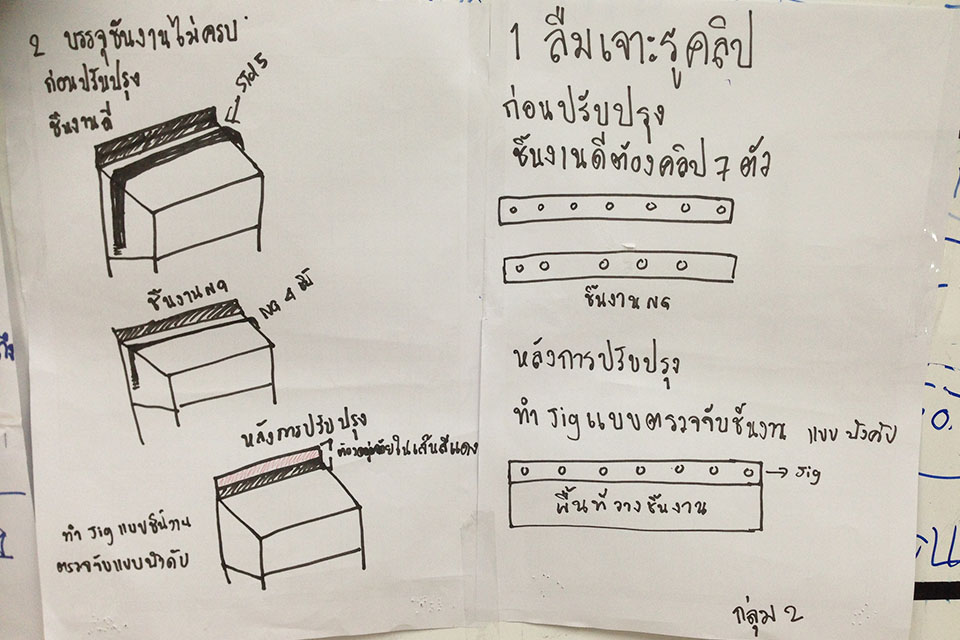 2 บรรจุชิ้นงานไม่ครบ
ก่อนปรับปรุง
ชิ้นงานดี
ชิ้นงาน NG
NG 4
หลังการปรับปรุง
ในเส้นสีแดง
ทำ Jig แบบชิ้นงาน
ตรวจจับแบบบังคับ
1 ลืมเจาะรูคลิป
ก่อนปรับปรุง
ชิ้นงานดีต้องคลิป 7 ตัว
ชิ้นงาน NG
หลังการปรับปรุง
ทำ Jig แบบตรวจจับชิ้นงาน แบบ บังคับ
Jig
พื้นที่วางชิ้นงาน
กลุ่ม 2